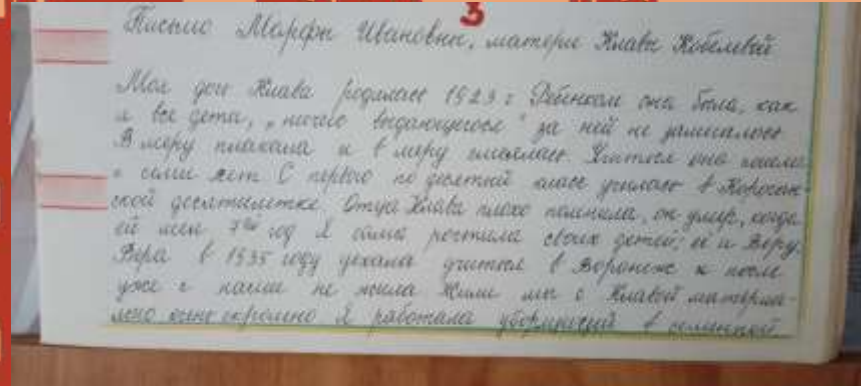 3
Письмо Марфы Ивановны, матери Клавы Кобелевой
Моя дочь Клава родилась 1923 г. Ребенком она была, как
и все дети, „ничего выдающегося" за ней не замечалось
В меру плакала и в меру смеялась. Учиться она пошла
с семи лет. С первого по десятый класс училась в
ской десятилетке. Отца Клава плохо помнила, он умер, когда
ей шел 7ой год Я сама растила своих детей: её и Веру.
Вера в 1935 году уехала учиться в Воронеж и после
уже с нами не жила Жили мы с Клавой материа-
льно скромно Я работала уборщицей в